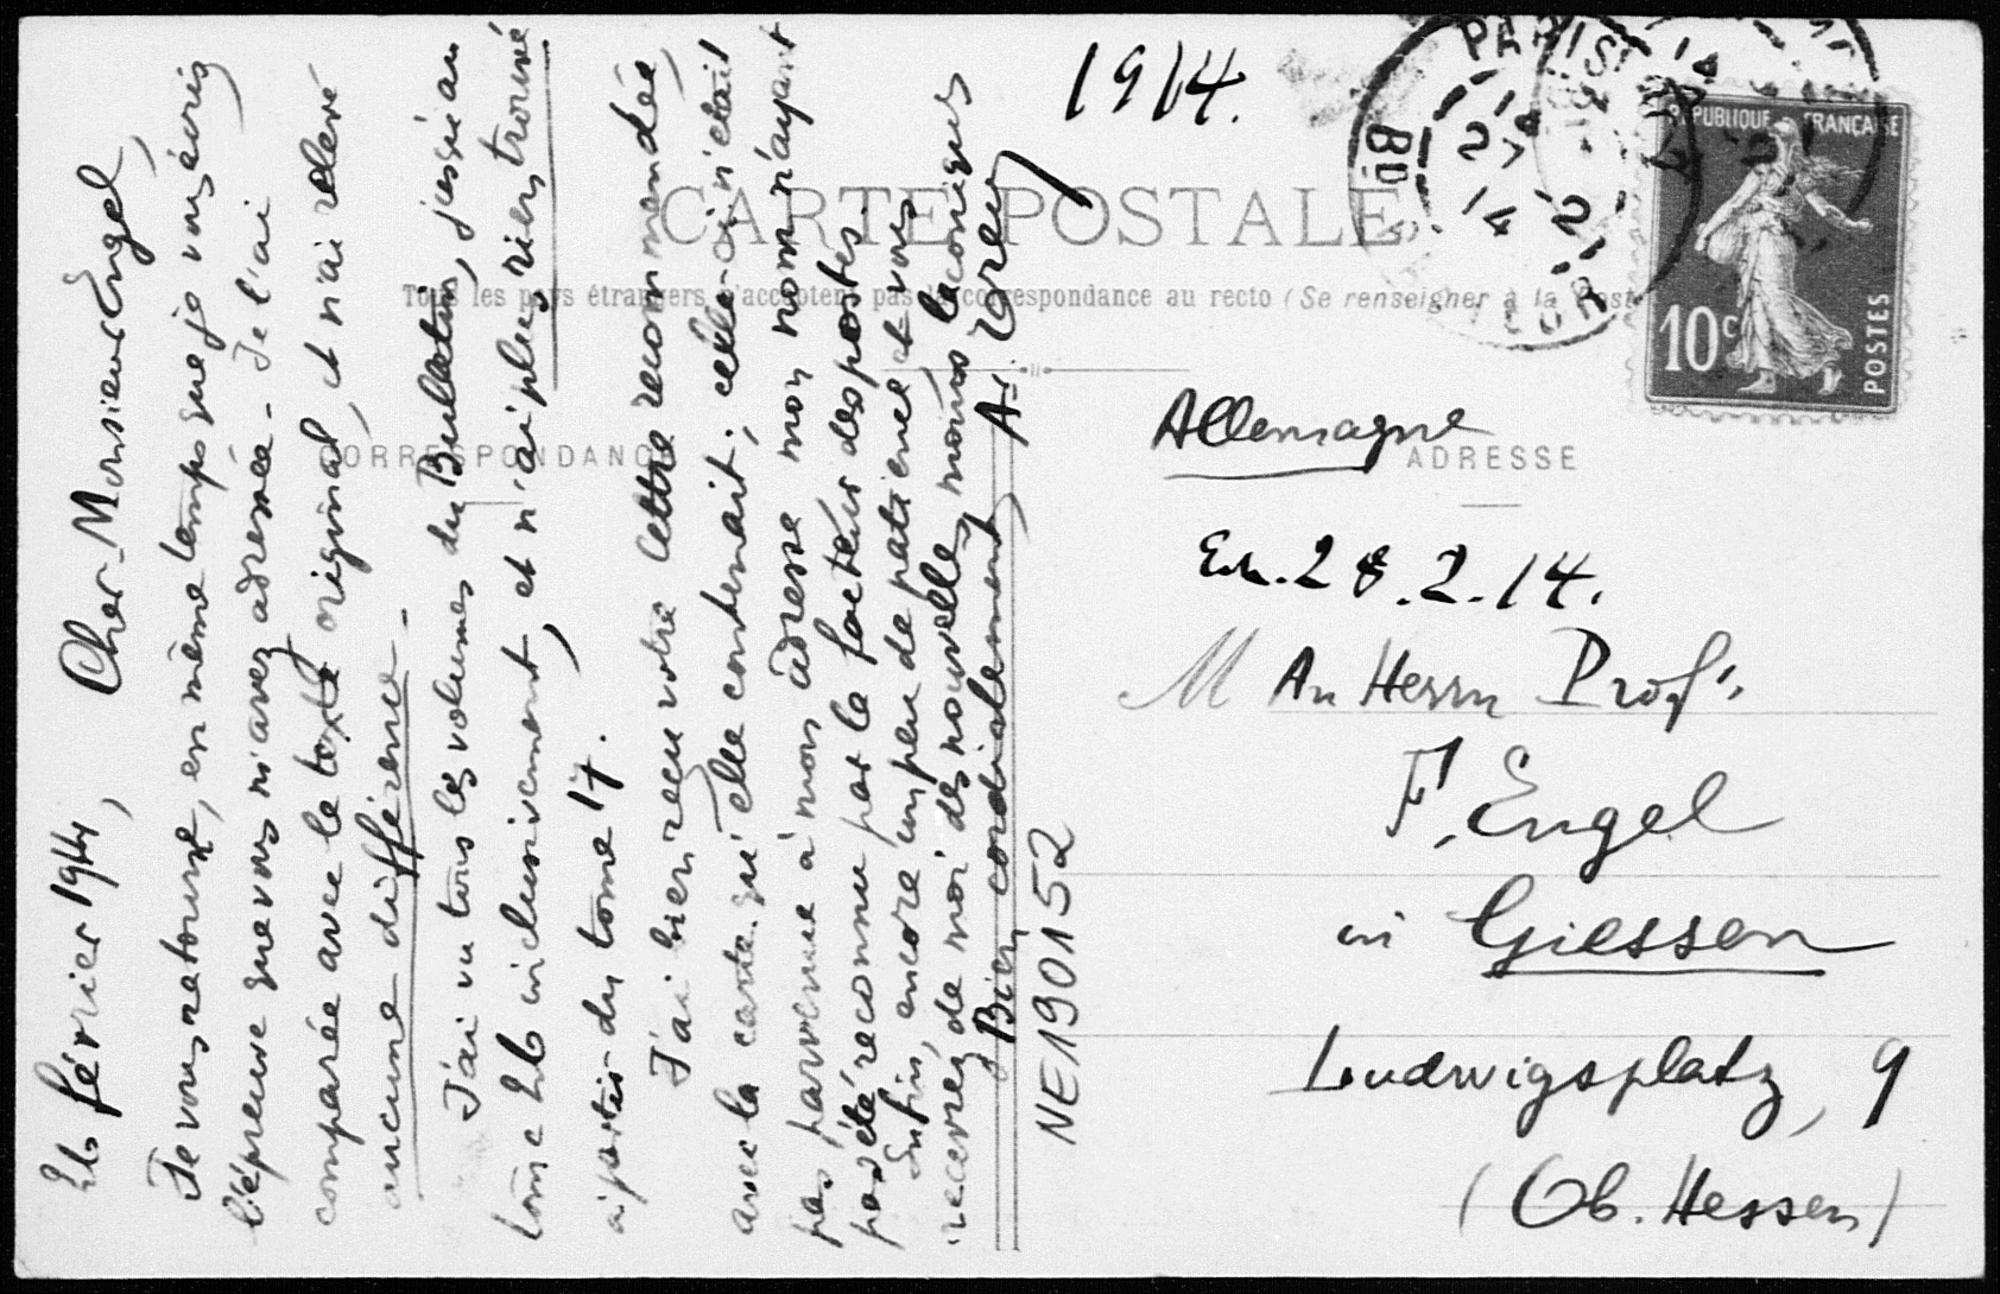 26 février 1914, Cher Monsieur Engel,
Je vous retourne, en même temps que je vous écris
l'épreuve que vous m'avez adressée - Je l'ai
comparée avec le texte original, et n'ai relevé
aucune différence -
J'ai vu tous les volumes du Bulletin, jusqu'au
tome 26 inclusivement, et n'ai plus rien trouvé
à partir du tome 17.
J'ai bien reçu votre lettre recommandée
avec la carte qu'elle contenait; celle-ci n'était
pas parvenue à mon adresse mon nom n'ayant
pas été reconnu par le facteur des postes.
Enfin, encore un peu de patience et vous
recevrez de moi des nouvelles moins laconiques
Bien cordialement A.
NE190152
1914.
PARIS
27
14
CARTE POSTALE
Tous les pays étrangers n'acceptent pas la correspondance au recto (Se renseigner à la Poste
CORRESPONDANCE
ADRESSE
REPUBLIQUE FRANÇAISE
10c
POSTES
Allemagne
28.2.14.
M An Herrn Prof.
F. Engel
in Giessen
Ludwigsplatz, 9
(Ob. Hessen)